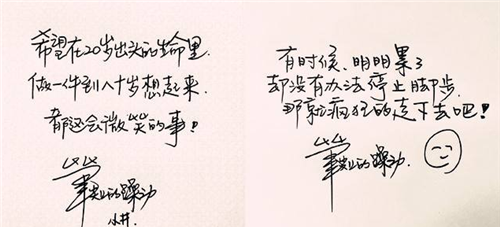 希望在20岁出头的生命里
做一件到八十岁想起来
都还会微笑的事!
毕业的躁动
小井
有时候,明明累了
却没有办法停止脚步
那就疯狂的走下去吧!
毕业的躁动